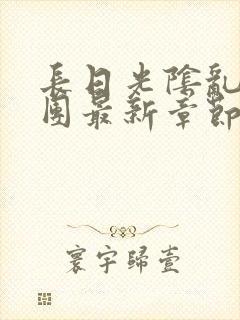 長日光陰亂
團最新章節
寰宇歸壹